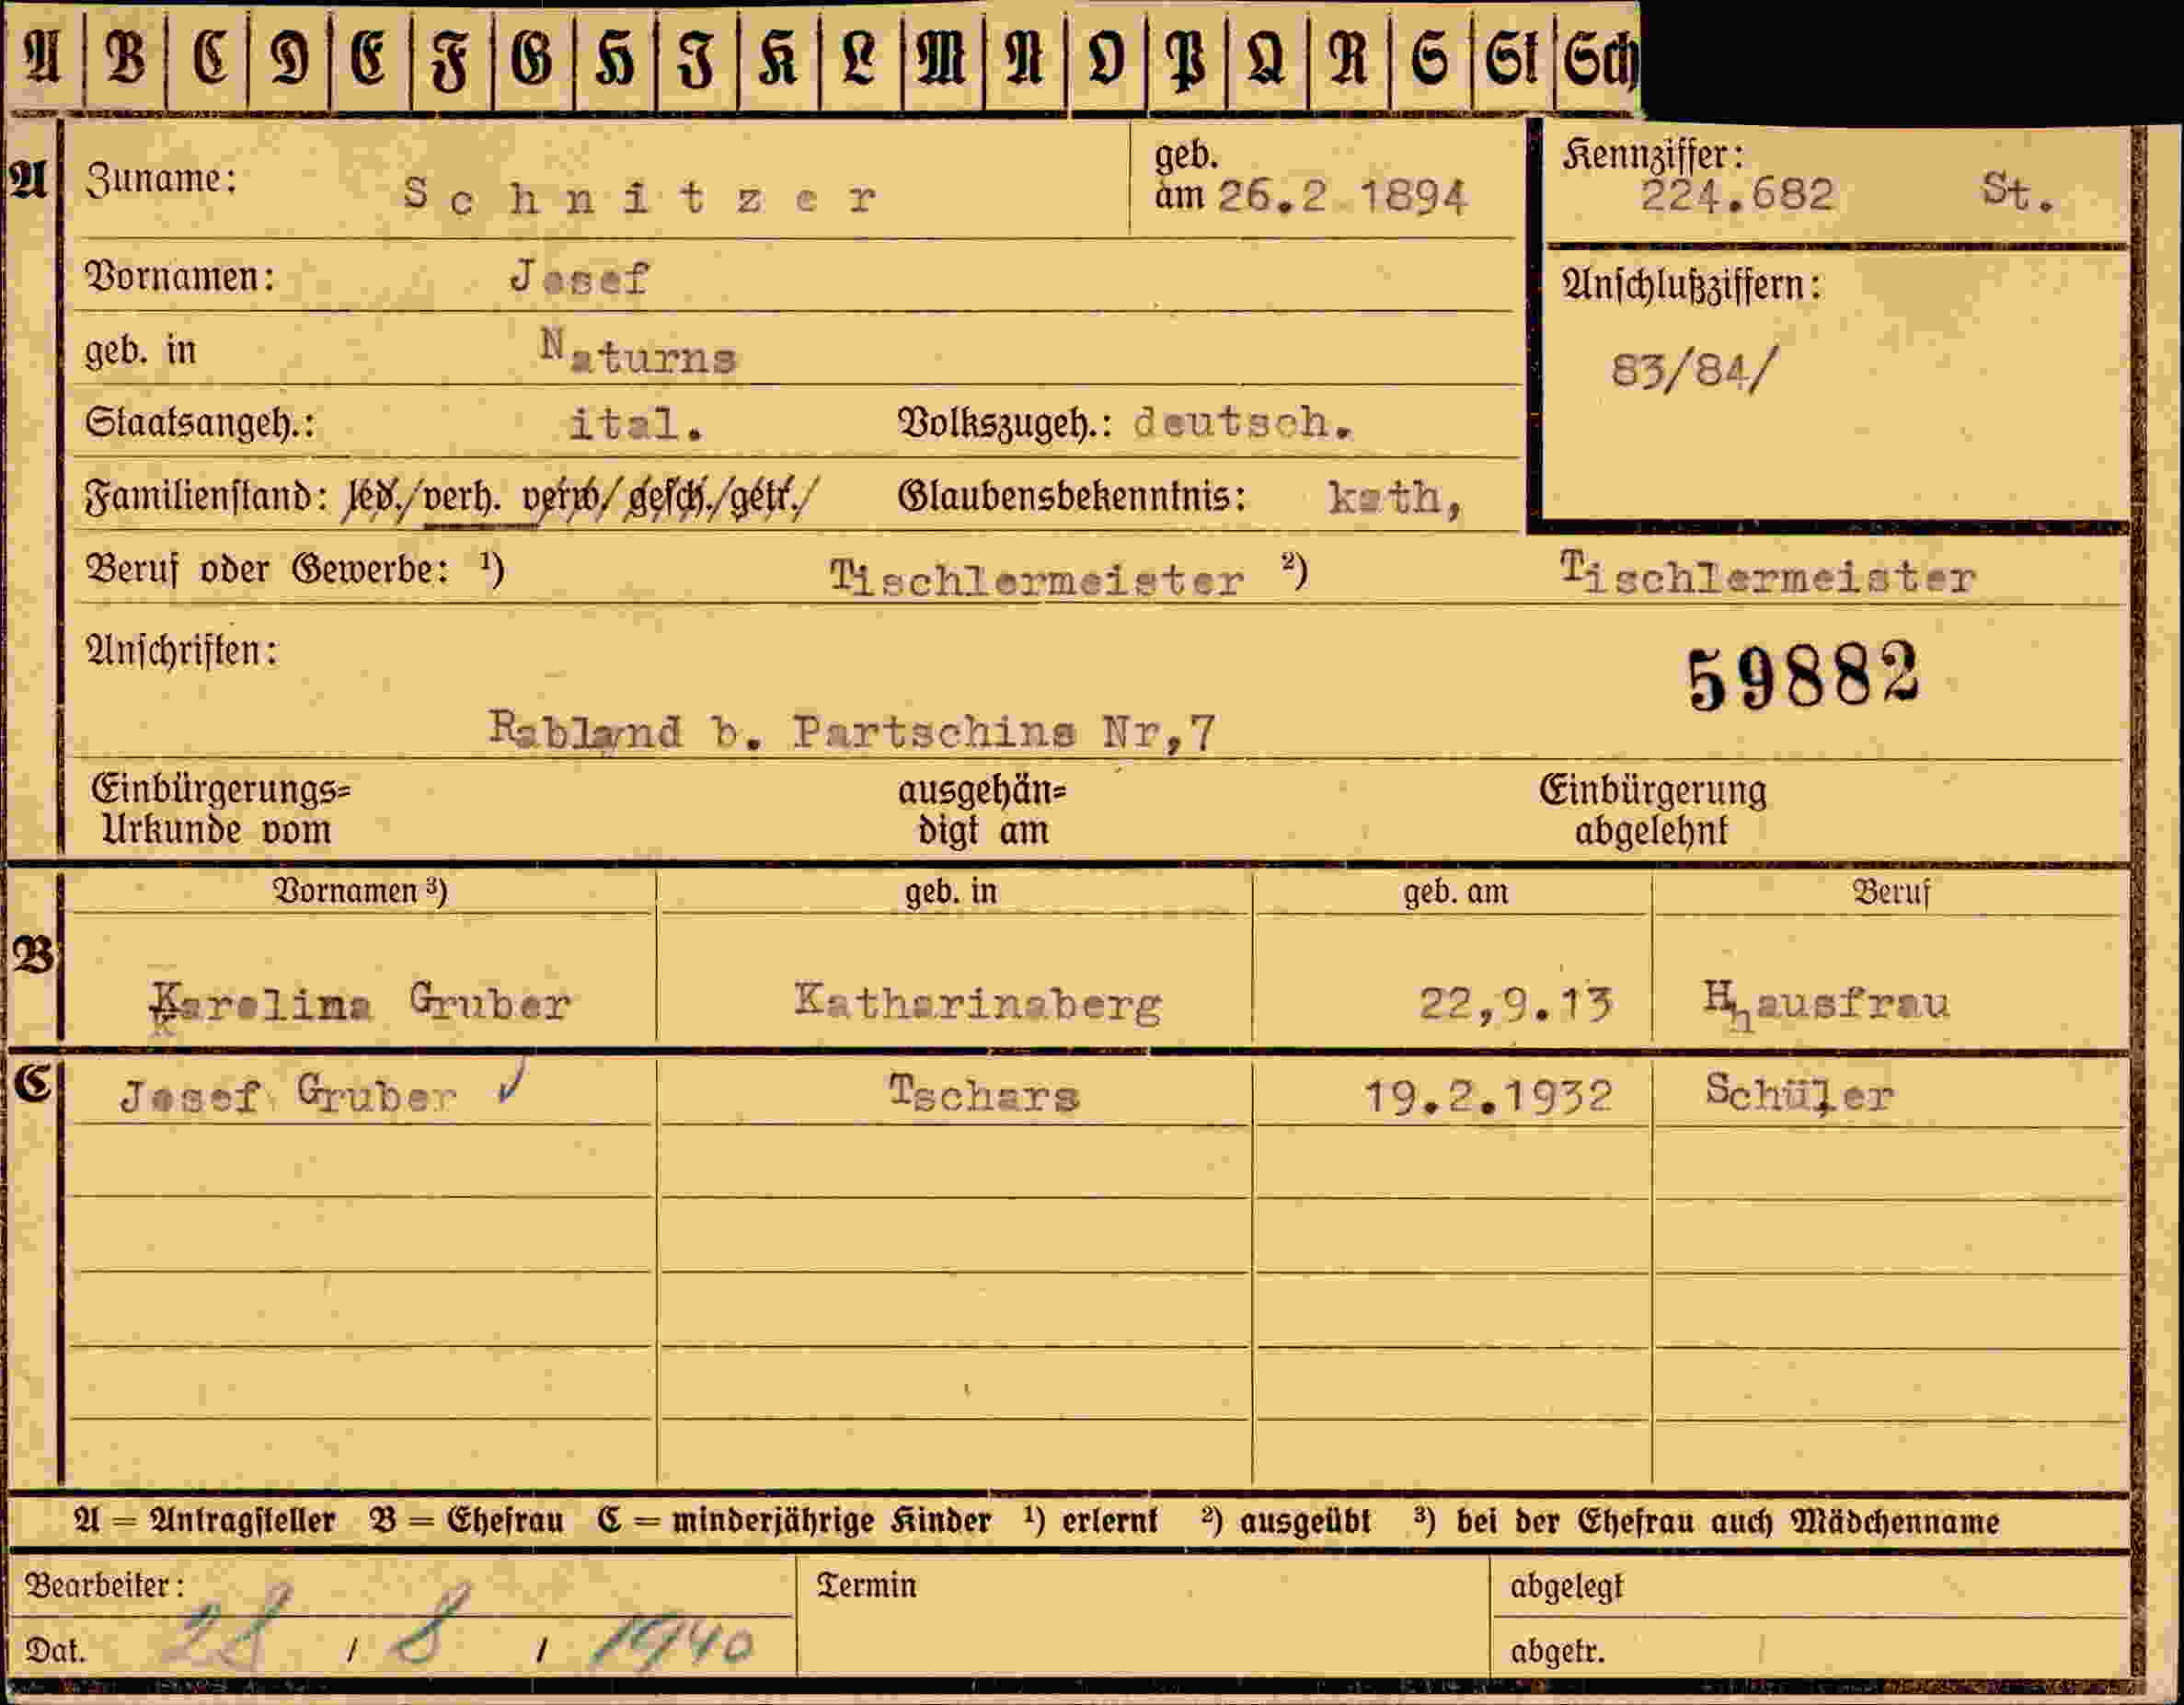 A B C D E F G H I K L M N O P Q R S St Sch
A Zuname: Schnitzer geb. am 26.2.1894 Kennziffer: 224.682 St.
Vornamen: Josef Anschlußziffern:
geb. in Naturns 83/84/
Staatsangeh.: ital. Volkszugeh.: deutsch.
Familienstand: led./verh. verw/gesch./getr./ Glaubensbekenntnis: kath,
Beruf oder Gewerbe: ¹) Tischlermeister ²) Tischlermeister
Anschriften: 59882
Rabland b. Partschins Nr,7
Einbürgerungs= ausgehän= Einbürgerung
Urkunde vom digt am abgelehnt
Vornamen ³) geb. in geb. am Beruf
B Karolina Gruber Katharinaberg 22,9.13 Hhausfrau
C Josef Gruber ✓ Tschars 19.2.1932 Schüler
A = Antragsteller B = Ehefrau C = minderjährige Kinder ¹) erlernt ²) ausgeübt ³) bei der Ehefrau auch Mädchenname
Bearbeiter: Termin abgelegt
Dat. 28 / 8 / 1940 abgetr.